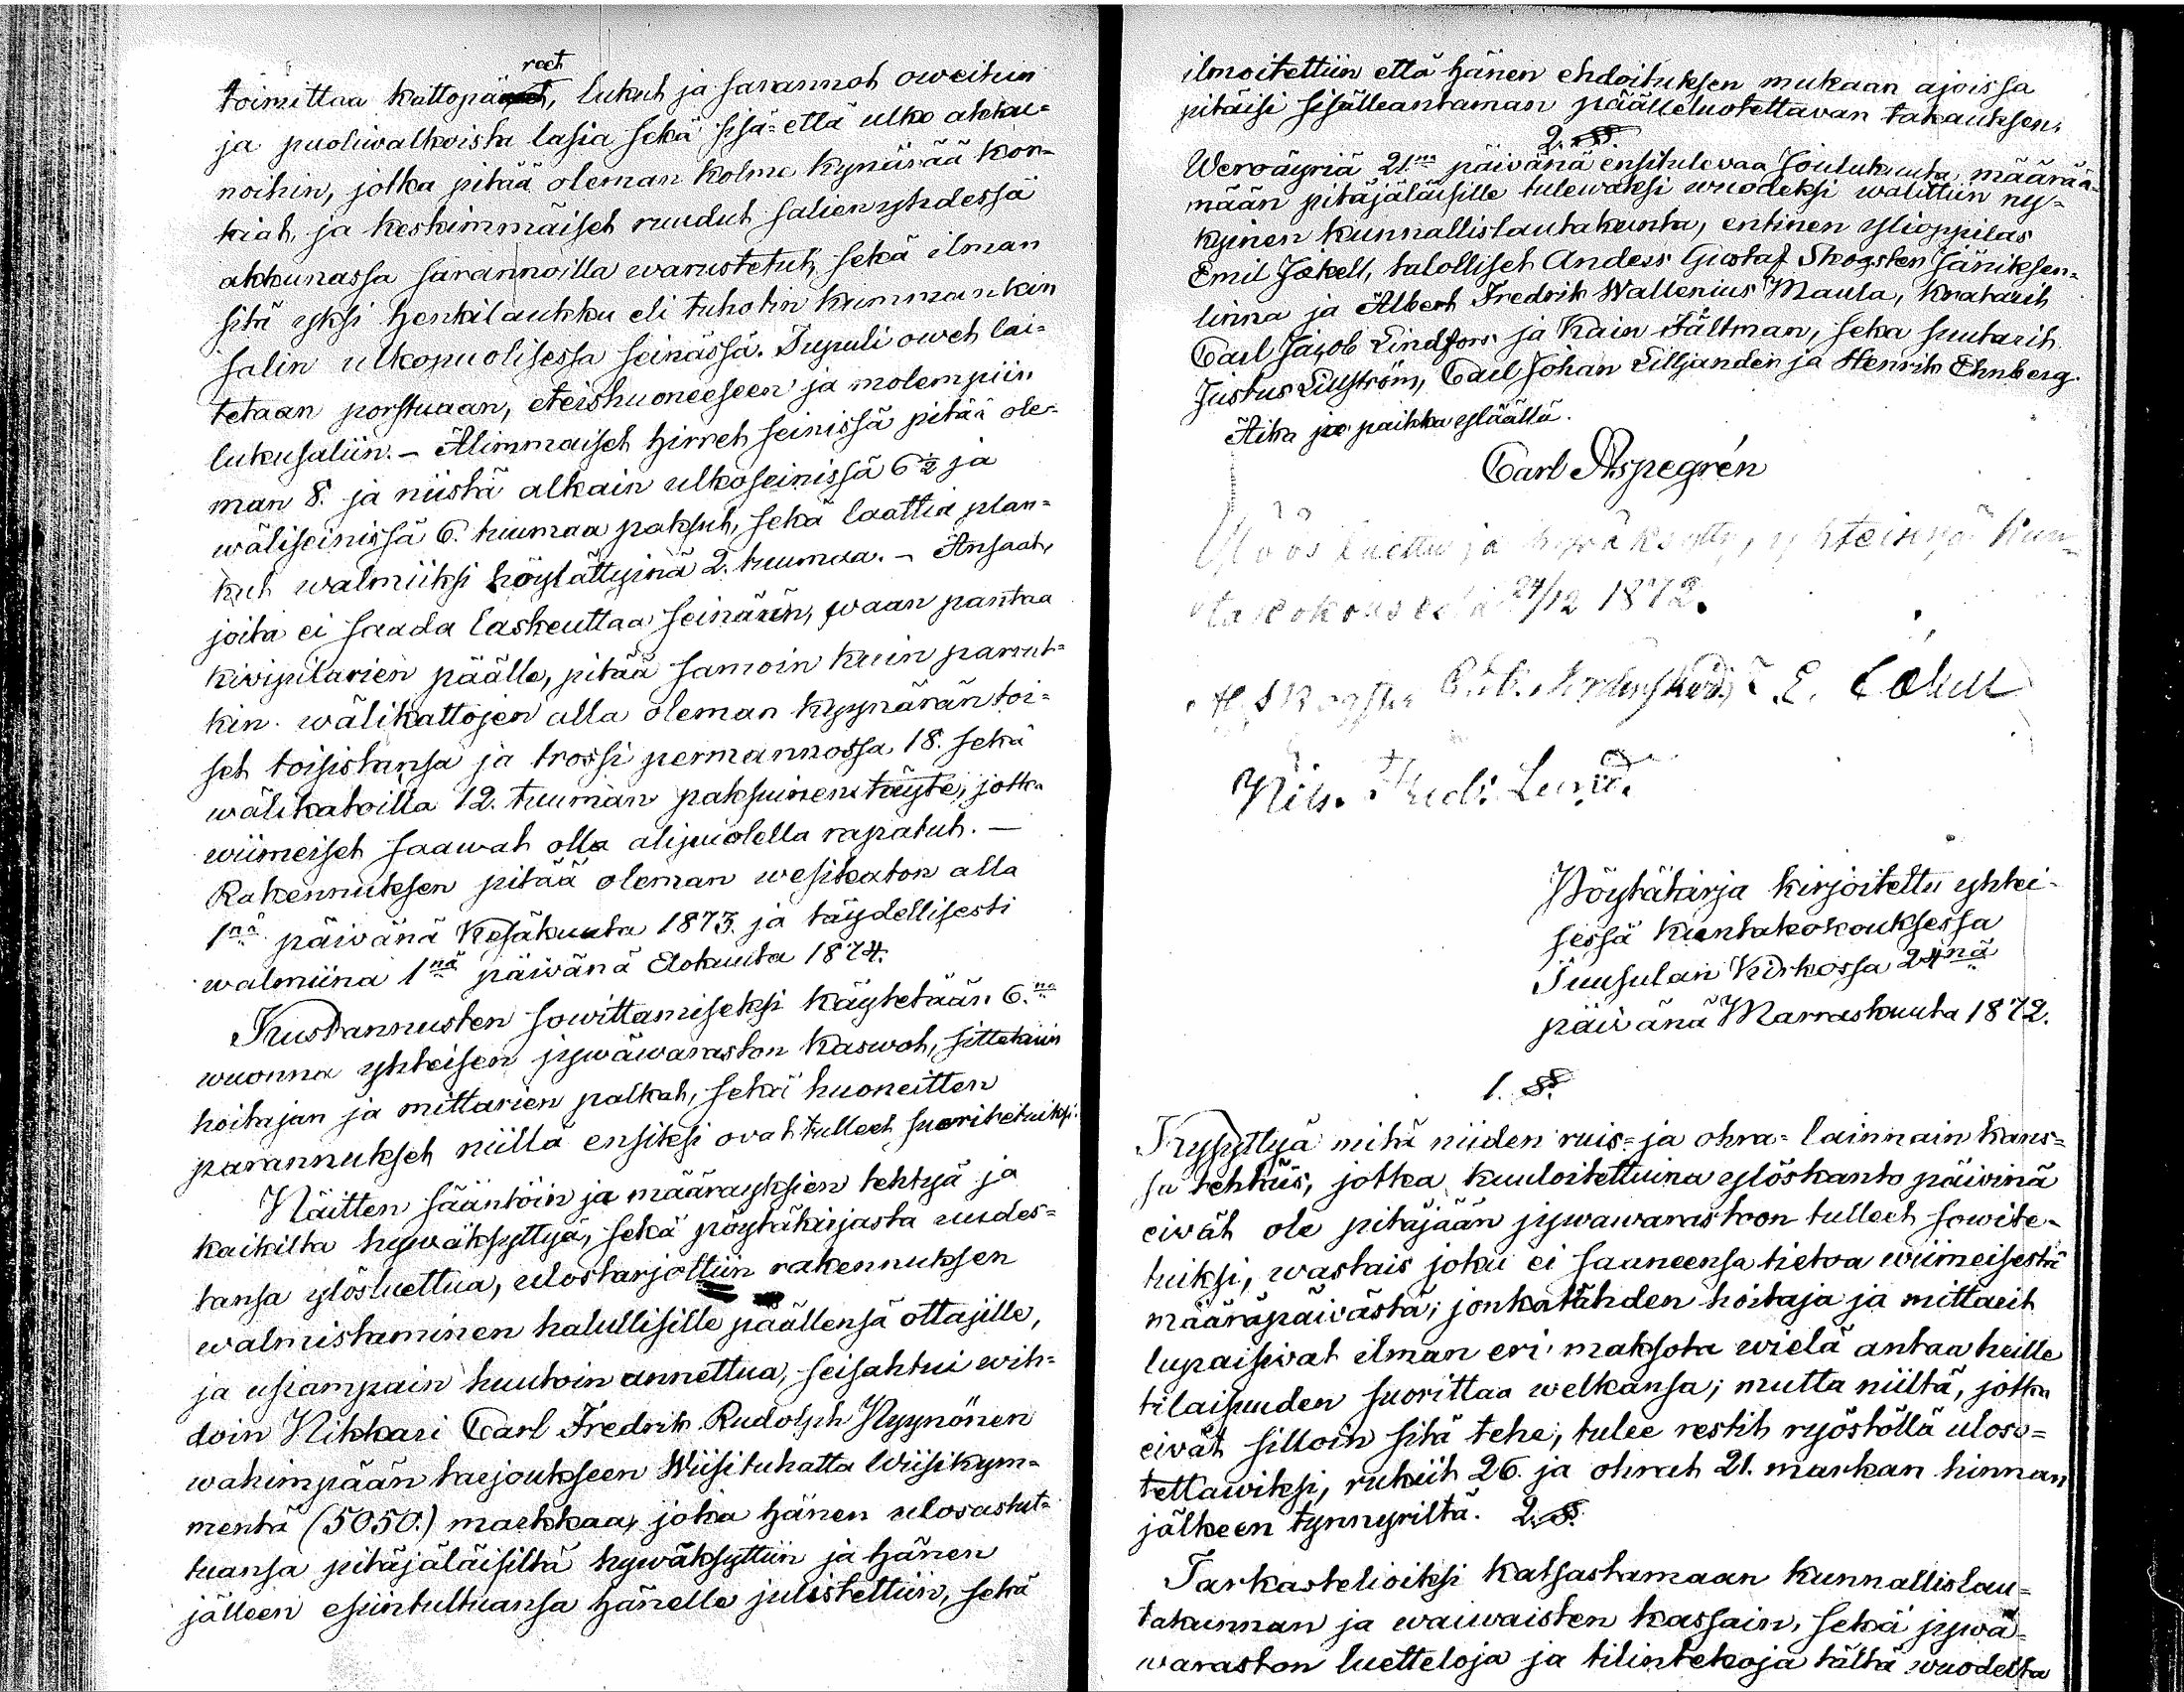 toimittaa kattopäreet, lukut ja sarannot oweihin
ja puoliwalkoista lasia sekä sisä= että ulko akku=
noihin, jotka pitää oleman kolme kynärää kor=
kiat, ja keskimmäiset ruudut salien yhdessä
akkunassa sarannoilla warustetut, sekä ilman
sitä yksi henkilaukku eli tuhotin kummankin
salin ulkopuolisessa seinässä. Tupuli owet lai=
tetaan porstuaan, eteishuoneeseen ja molempiin
lukusaliin. — Alimmaiset hirret seinissä pitää ole=
man 8. ja niistä alkain ulkoseinissä 6½ ja
wäliseinissä 6. tuumaa paksut, sekä laattia plan=
kut walmiiksi höylättyinä 2. tuumaa. — Ansaat,
joita ei saada laskeuttaa seinään, waan pantaa
kivipilarien päälle, pitää samoin kuin parrut=
kin wälikattojen alla oleman kyynärän toi=
set toisistansa ja trossi permannossa 18. sekä
wälikatoilla 12. tuuman paksuinen täyte, jotka
wiimeiset saawat olla alipuolella rapatut. —
Rakennuksen pitää oleman wesikaton alla
1nä päivänä Kesäkuuta 1873. ja täydellisesti
walmiina 1nä päivänä Elokuuta 1874.
Kustannusten sowittamiseksi käytetään 6.na
wuonna yhteisen jywäwaraston kaswot, sittekuin
hoitajan ja mittarien palkat, sekä huoneitten
parannukset niillä ensiksi ovat tulleet suoritetuiksi.
Näitten sääntöin ja määräyksien tehtyä ja
kaikilta hywäksyttyä, sekä pöytäkirjasta uudes=
tansa ylösluettua, ulostarjottiin rakennuksen
walmistaminen halullisille päällensä ottajille,
ja usiampain huutoin annettua, seisahtui wih=
doin Nikkari Carl Fredrik Rudolph Nyynönen
wahimpään tarjoukseen Wiisituhatta Wiisikym=
mentä (5050.) markkaa, joka hänen ulosastut=
tuansa pitäjäläisiltä hywäksyttiin ja hänen
jälleen esiintultuansa hänelle julistettiin, sekä
ilmoitettiin että hänen ehdoituksen mukaan ajoissa
pitäisi sisälleantaman päälleluotettavan takauksen.
2. §.
Weroäyriä 21.nä päivänä ensitulevaa Joulukuuta määrää=
mään pitäjäläisille tulewaksi wuodeksi walittiin ny=
kyinen kunnallislautakunta, entinen ylioppilas
Emil Jækell, talolliset Anders Gustaf Skogsten Jäniksen=
linna ja Albert Fredrik Wallenius Maula, kratarit
Carl Jacob Lindfors ja Kain Fältman, sekä suutarit
Justus Lillström, Carl Johan Lilljanden ja Henrik Ehnberg.
Aika ja paikka ylläällä.
Carl Aspegrén
Ylös luettu ja hyväksytty, yhteisessä kun=
ta kokouksessa 24/12 1872.
A. G. Skogsten
Nils. Fredr: Lund.
Pöytäkirja kirjoitettu yhtei=
sessä Kuntakokouksessa
Tuusulan Kirkossa 24nä
päivänä Marraskuuta 1872.
1. §.
Kysyttyä mitä niiden ruis= ja ohra= lainnain kans=
sa tehtäis, jotka kuuloitettuina ylöskanto päivinä
eivät ole pitäjään jywawarastoon tulleet sowite=
tuiksi, wastais joku ei saaneensa tietoa wiimeisestä
määräpäivästä; jonkatähden hoitaja ja mittarit
lupaisivat ilman eri maksota wielä antaa heille
tilaisuuden suorittaa welkansa; mutta niiltä, jotka
eivät silloin sitä tehe, tulee restit ryöstöllä uloso=
tettawiksi, rukiit 26. ja ohrat 21. markan hinnan
jälkeen tynnyriltä. 2. §.
Tarkastelioiksi katsastamaan kunnallislau=
takunnan ja waiwaisten kassain, sekä jywä=
waraston luetteloja ja tilintekoja tältä wuodelta